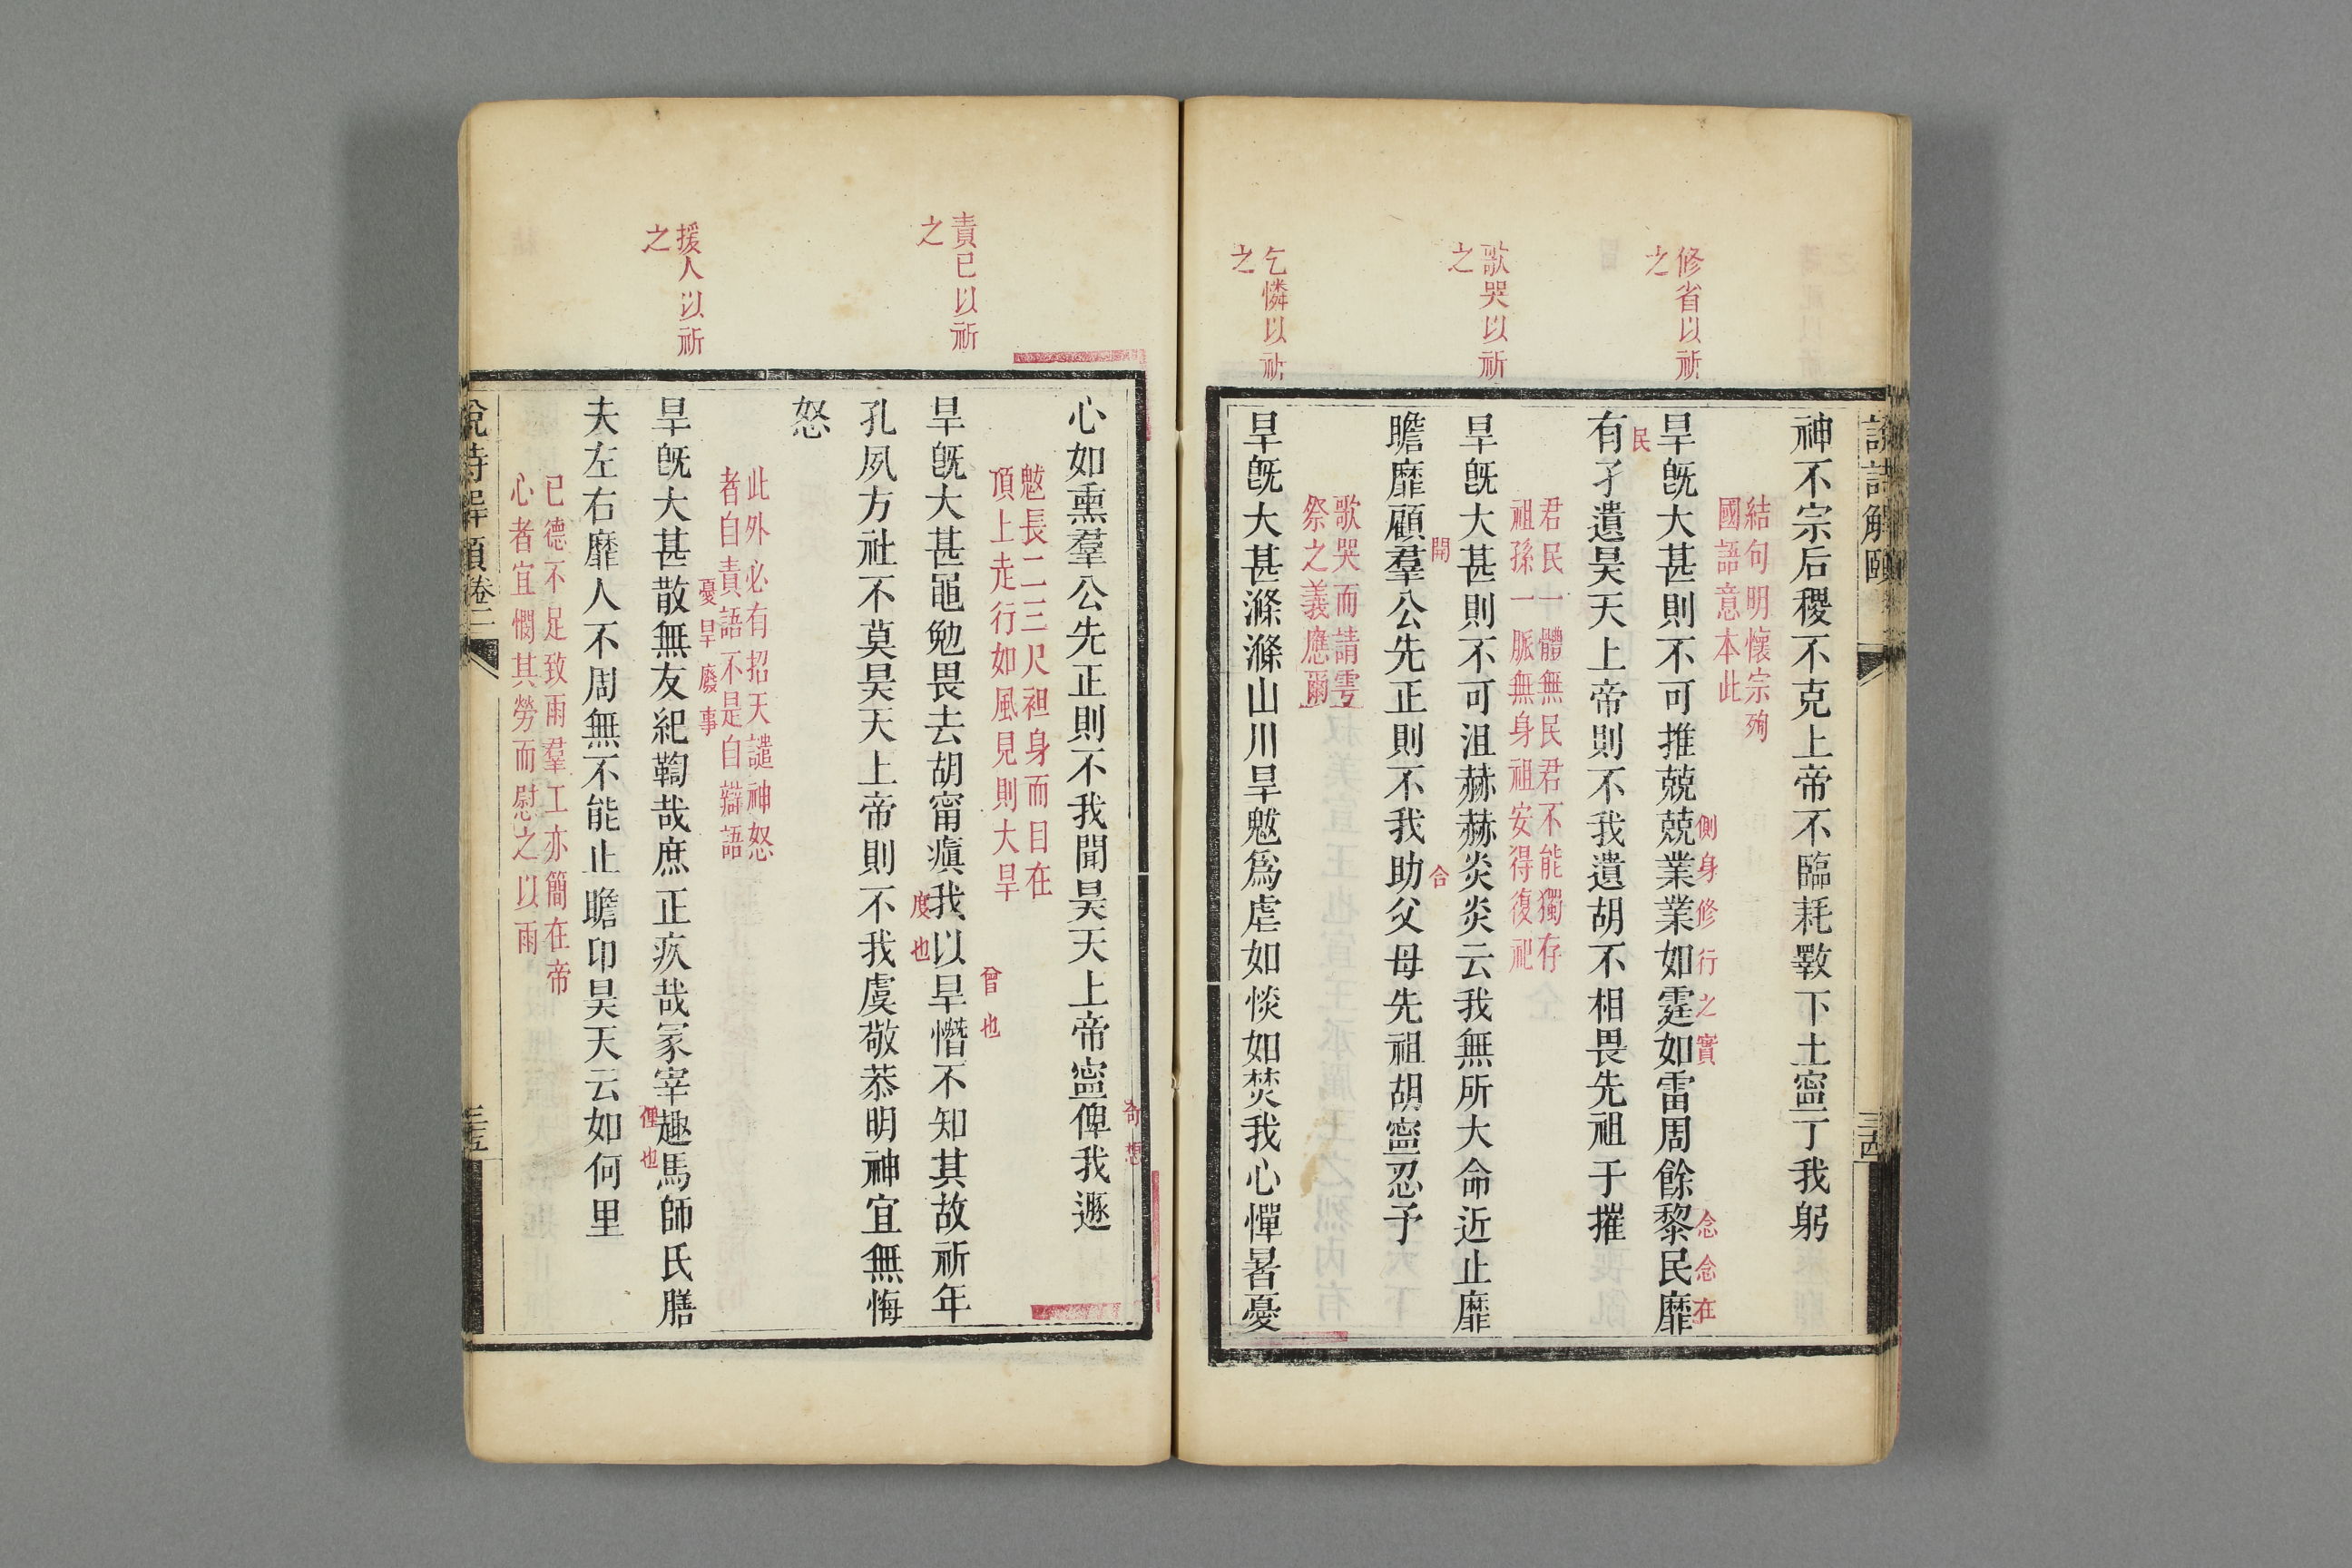 說詩解頤
三古
修省以祈
之
歌哭以祈
之
乞憐以祈
之
神不宗后稷不克上帝不臨耗斁下土寍丁我躬
結句明懷宗殉
國語意本此
側身修行之實
念念在
旱旣大甚則不可推兢兢業業如霆如雷周餘黎民靡
民
有孑遺昊天上帝則不我遺胡不相畏先祖于摧
君民一體無民君不能獨存
祖孫一脈無身祖安得復祀
旱旣大甚則不可沮赫赫炎炎云我無所大命近止靡
開
合
瞻靡顧羣公先正則不我助父母先祖胡寍忍予
歌哭而請雩
祭之義應爾
旱旣大甚滌滌山川旱魃爲虐如惔如焚我心憚暑憂
責已以祈
之
援人以祈
之
奇想
心如熏羣公先正則不我聞昊天上帝寍俾我遯
魃長二三尺袒身而目在
頂上走行如風見則大旱
曾也
旱旣大甚黽勉畏去胡甯瘨我以旱憯不知其故祈年
度也
孔夙方社不莫昊天上帝則不我虞敬恭明神宜無悔
怒
此外必有招天譴神怒
者自責語不是自辯語
憂旱廢事
旱旣大甚散無友紀鞫哉庶正疚哉冢宰趣馬師氏膳
俚也
夫左右靡人不周無不能止瞻卬昊天云如何里
已德不足致雨羣工亦簡在帝
心者宜憫其勞而慰之以雨
說詩解頤 卷二
三五